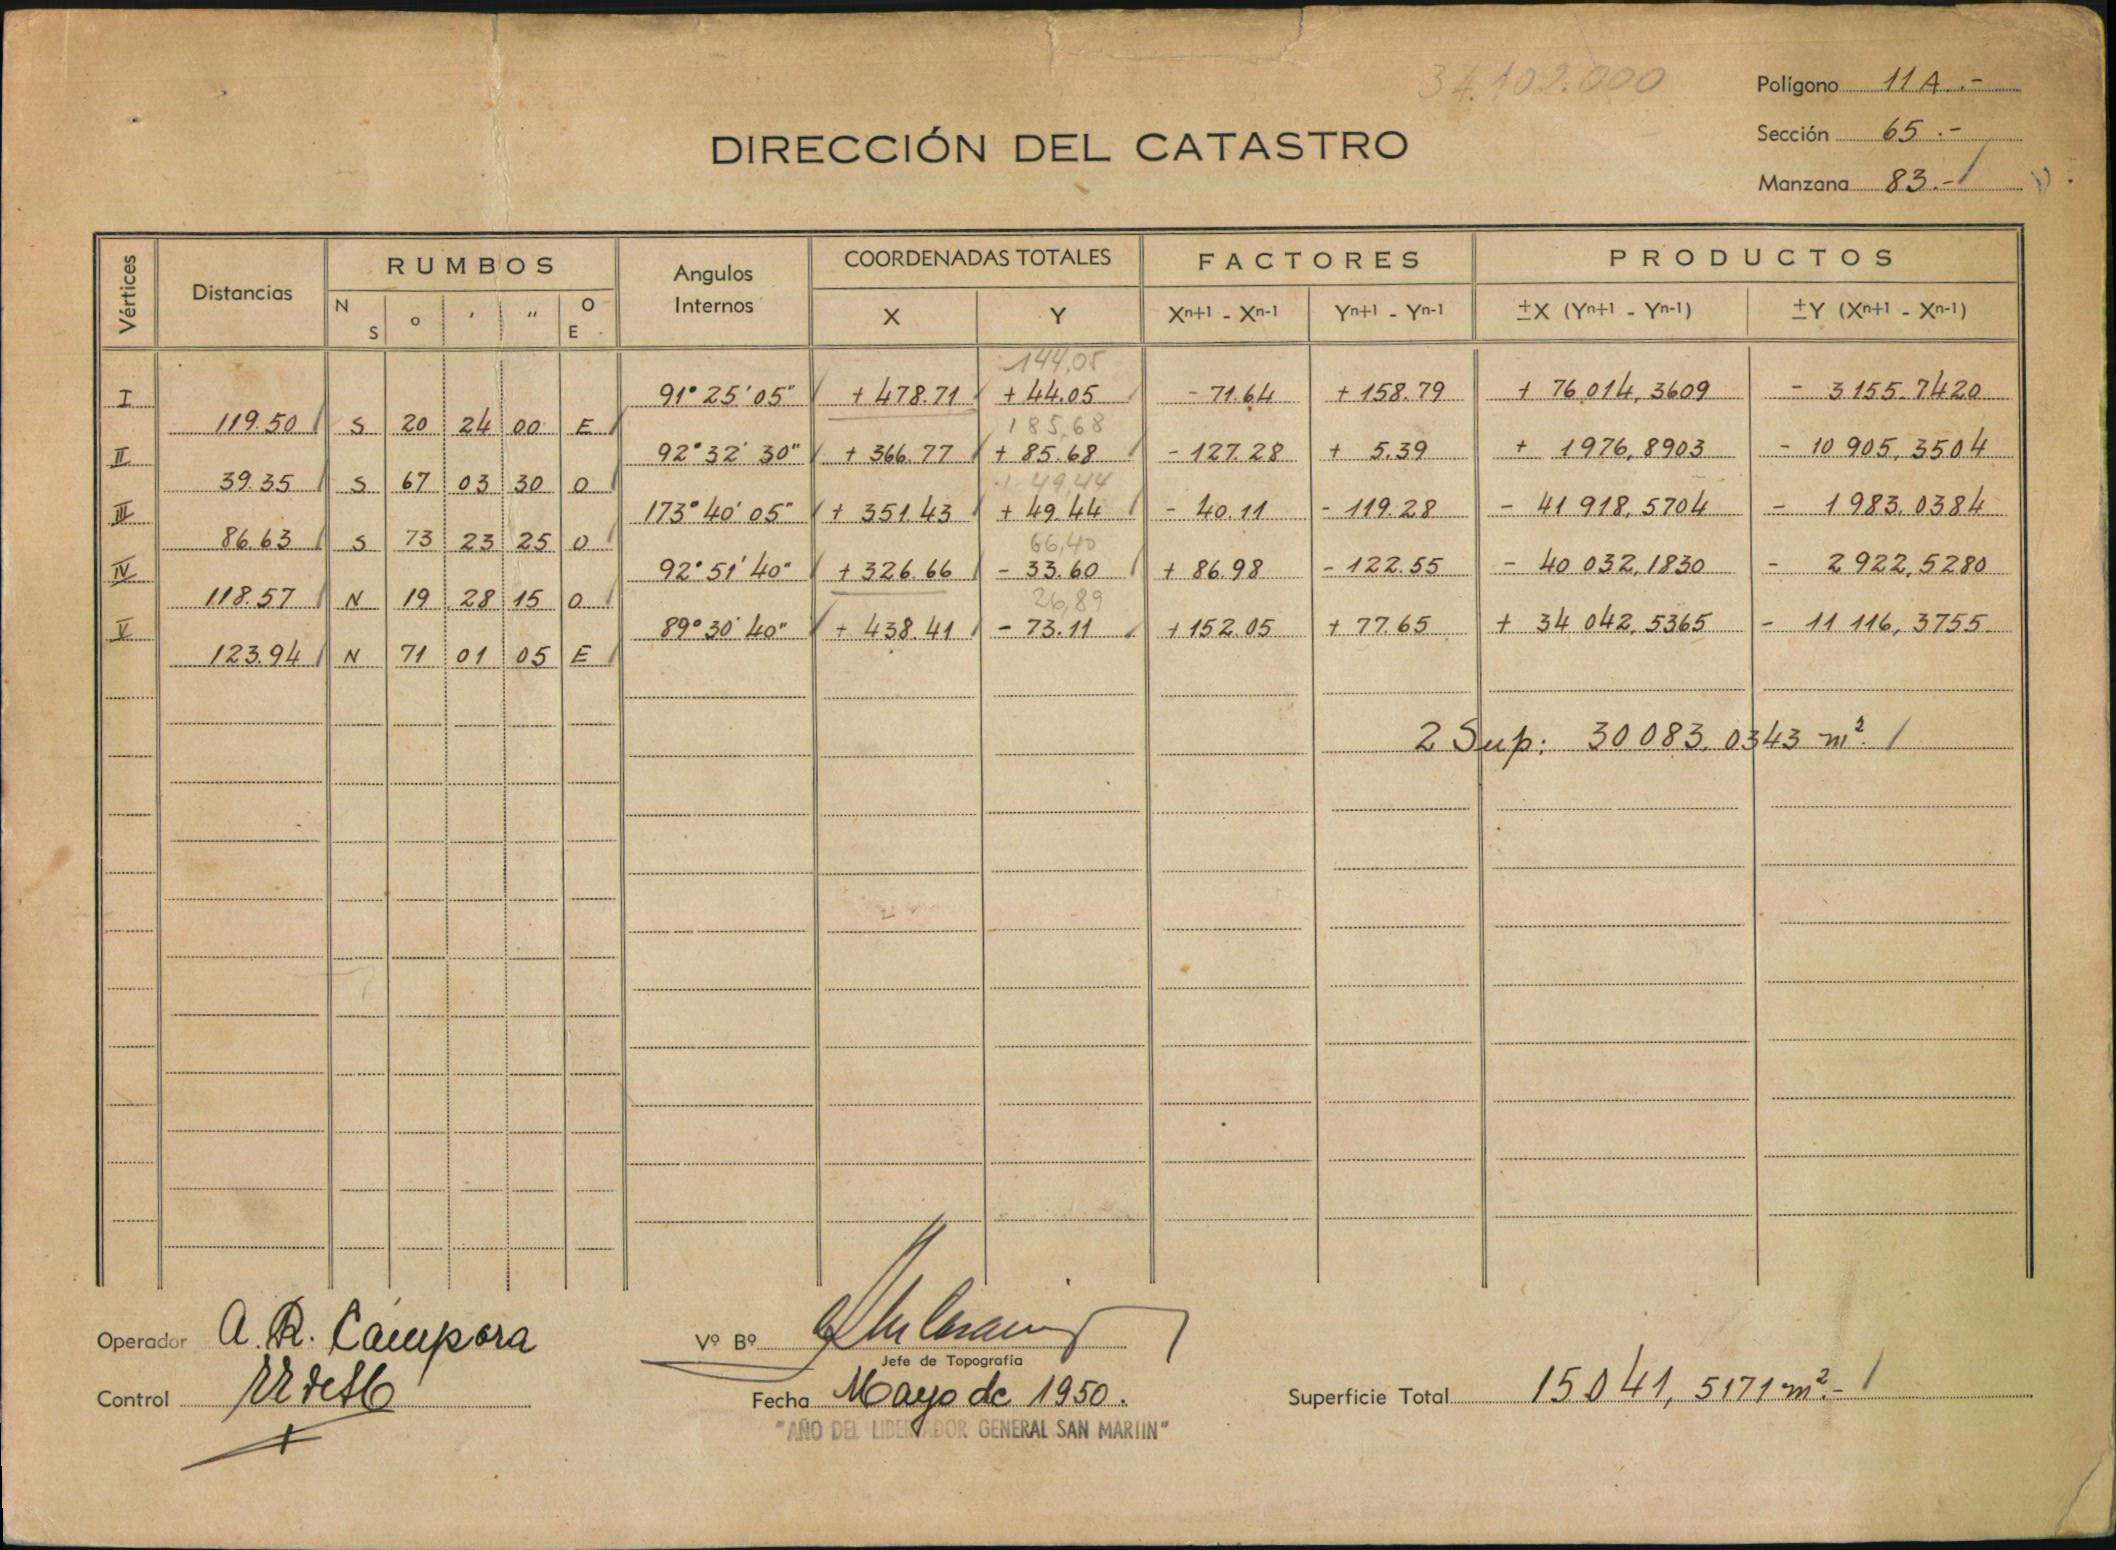 34.102.000
Polígono 11A.-
Sección 65.-
Manzana 83.-
DIRECCIÓN DEL CATASTRO
Vértices Distancias RUMBOS Angulos Internos COORDENADAS TOTALES FACTORES PRODUCTOS
N S o ' " O E X Y Xn+1 - Xn-1 Yn+1 - Yn-1 ±X (Yn+1 - Yn-1) ±Y (Xn+1 - Xn-1)
144,05
I 91° 25' 05" + 478.71 + 44.05 - 71.64 + 158.79 + 76 014,3609 - 3155.7420
119.50 S 20 24 00 E 185,68
II 92° 32' 30" + 366.77 + 85.68 - 127.28 + 5.39 + 1976,8903 - 10 905,3504
39.35 S 67 03 30 O 149,44
III 173° 40' 05" + 351.43 + 49.44 - 40.11 - 119.28 - 41 918,5704 - 1983,0384
86.63 S 73 23 25 O 66,40
IV 92° 51' 40" + 326.66 - 33.60 + 86.98 - 122.55 - 40 032,1830 - 2922,5280
118.57 N 19 28 15 O 26,89
V 89° 30' 40" + 438.41 - 73.11 + 152.05 + 77.65 + 34 042,5365 - 11 116,3755
123.94 N 71 01 05 E
2 Sup: 30 083,0343 m².
Operador A. R. Cámpora
Vº Bº
Jefe de Topografía
Control
Fecha Mayo de 1950.
Superficie Total 15.041,5171 m².-
"AÑO DEL LIBERTADOR GENERAL SAN MARTIN"